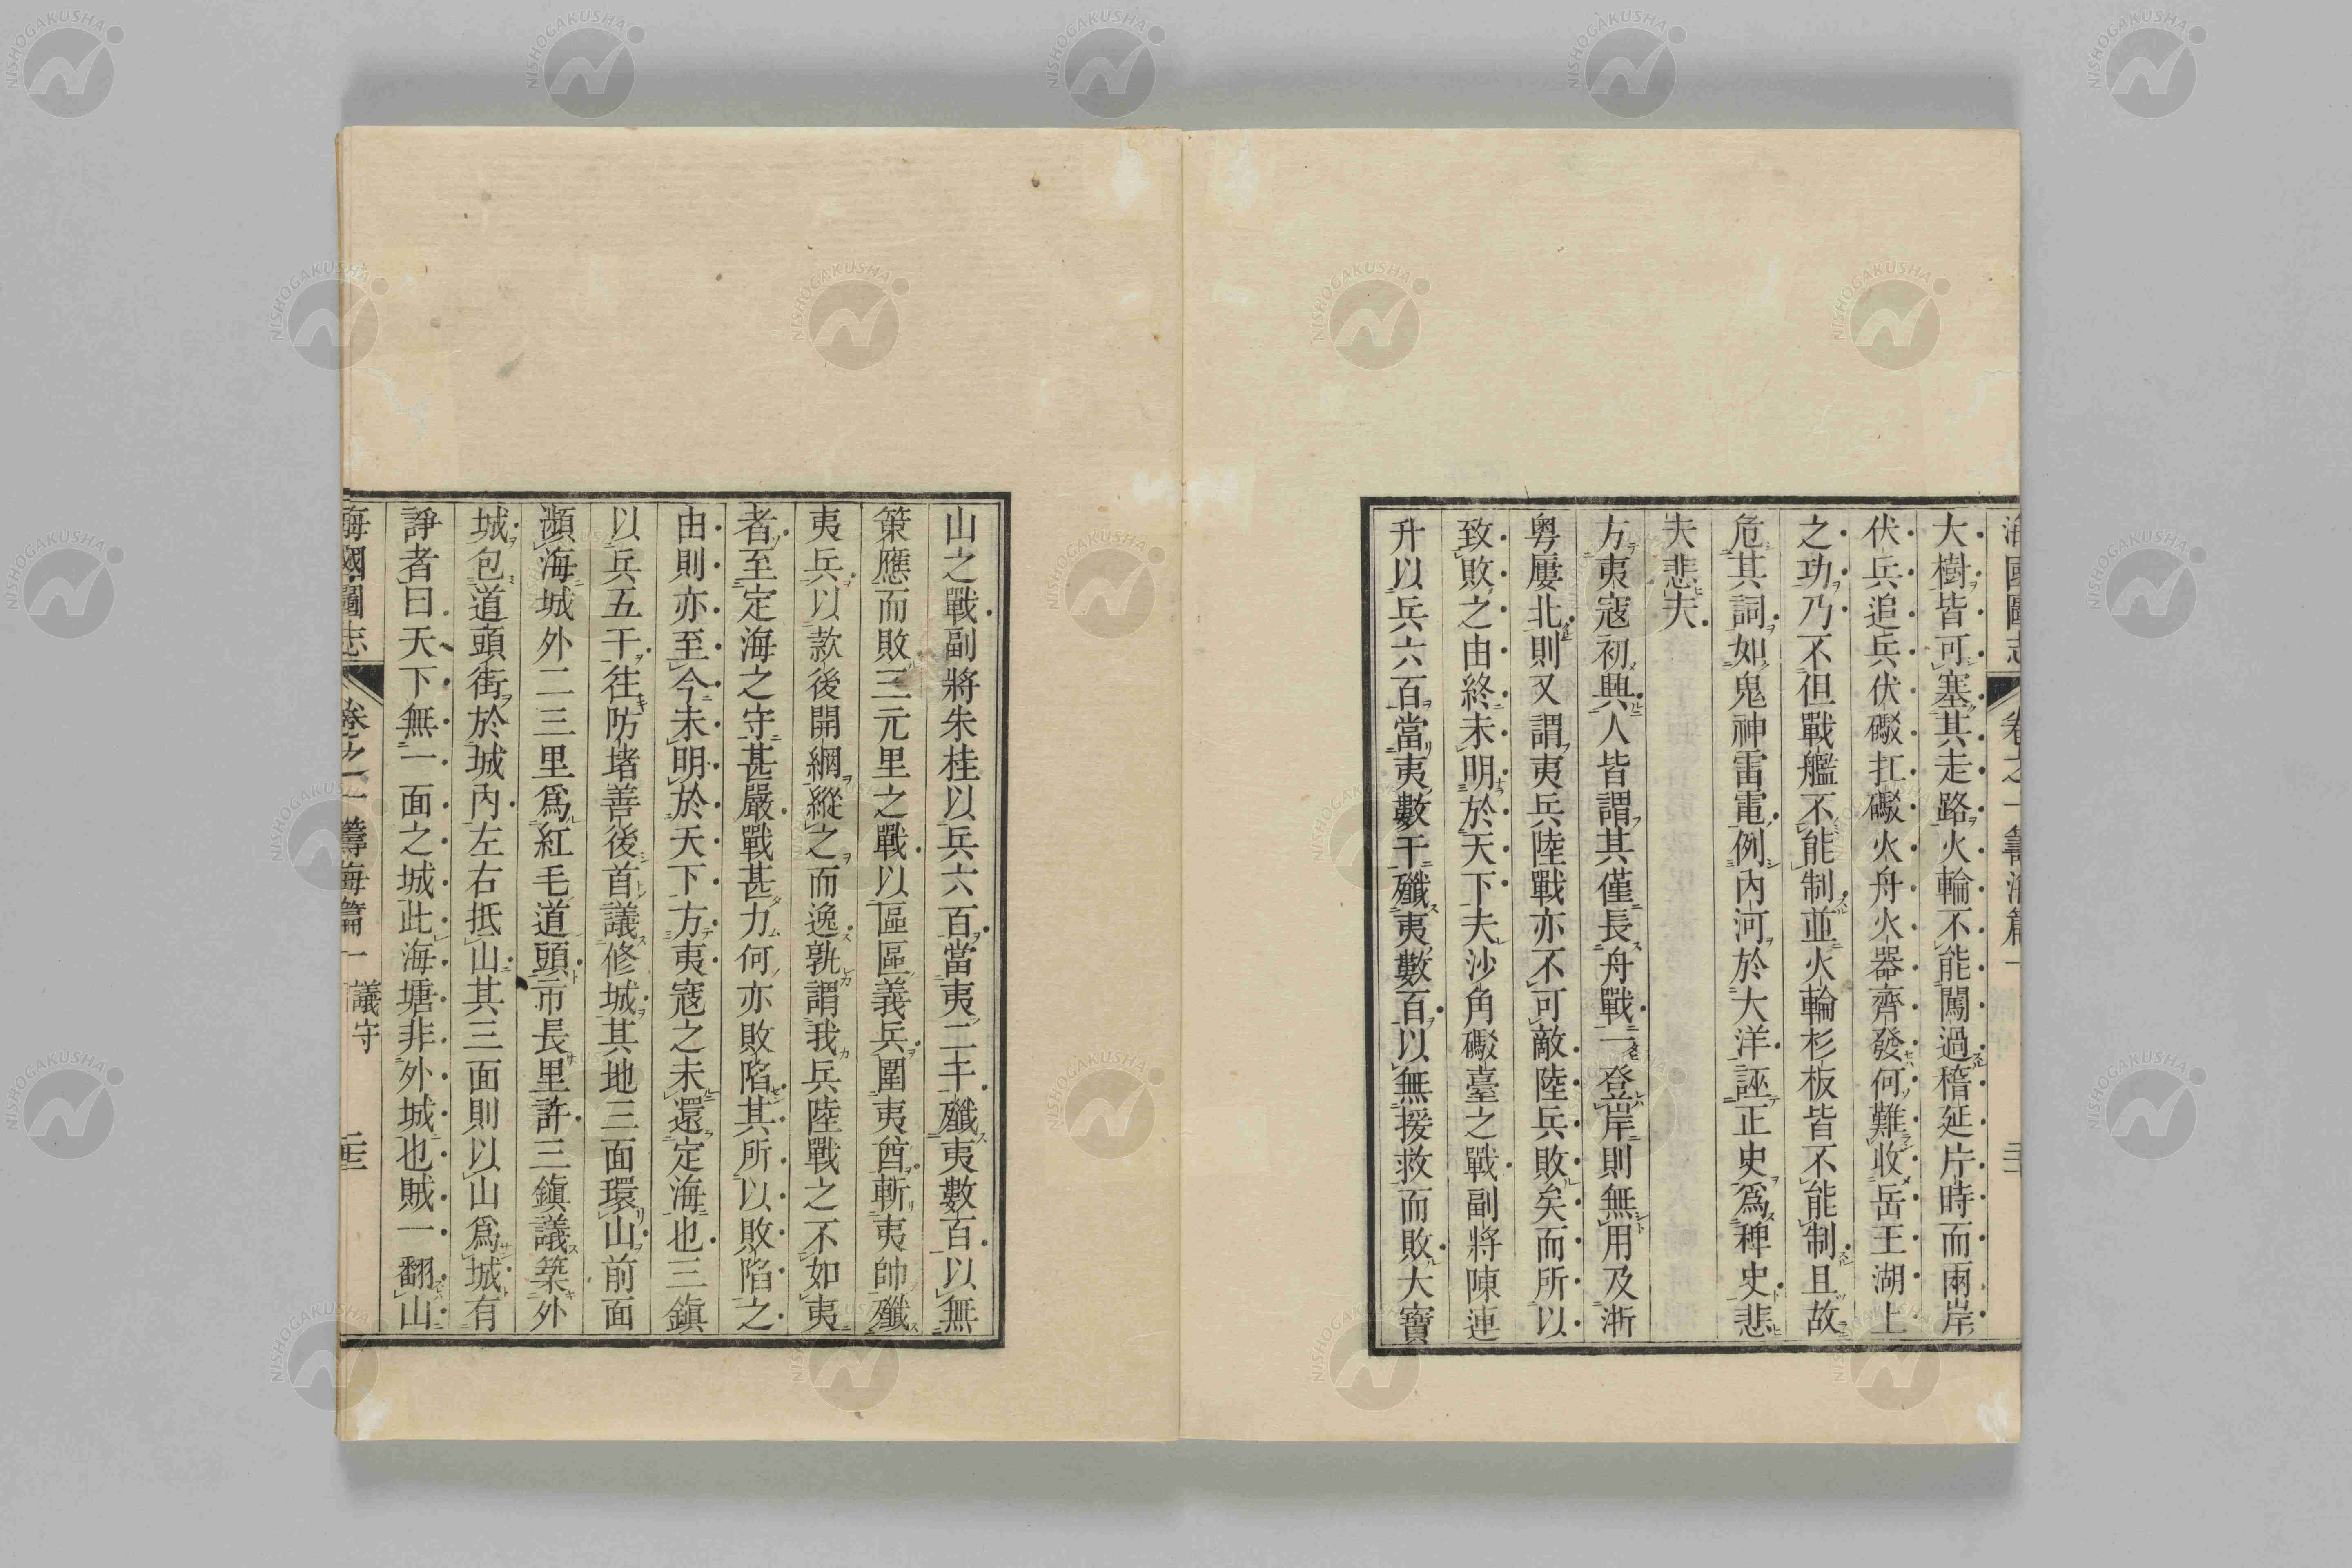 海國圖志 卷之一 籌海篇一
大樹皆可塞其走路火輪不能闖過稽延片時而兩岸
伏兵追兵伏礮扛礮火舟火器齊發何難收岳王湖上
之功乃不但戰艦不能制並火輪杉板皆不能制且故
危其詞如鬼神雷電例內河於大洋誣正史爲稗史悲
夫悲夫
方夷寇初興人皆謂其僅長舟戰一登岸則無用及浙
粵屢北則又謂夷兵陸戰亦不可敵陸兵敗矣而所以
致敗之由終未明於天下夫沙角礮臺之戰副將陳連
升以兵六百當夷數千殲夷數百以無援救而敗大寶
山之戰副將朱桂以兵六百當夷二千殲夷數百以無
策應而敗三元里之戰以區區義兵圍夷酋斬夷帥殲
夷兵以款後開網縱之而逸孰謂我兵陸戰之不如夷
者至定海之守甚嚴戰甚力何亦敗陷其所以敗陷之
由則亦至今未明於天下方夷寇之未還定海也三鎮
以兵五千往防堵善後首議修城其地三面環山前面
瀕海城外二三里爲紅毛道頭市長里許三鎮議築外
城包道頭街於城內左右抵山其三面則以山爲城有
諍者曰天下無一面之城此海塘非外城也賊一翻山
海國圖志 卷之一 籌海篇一 議守